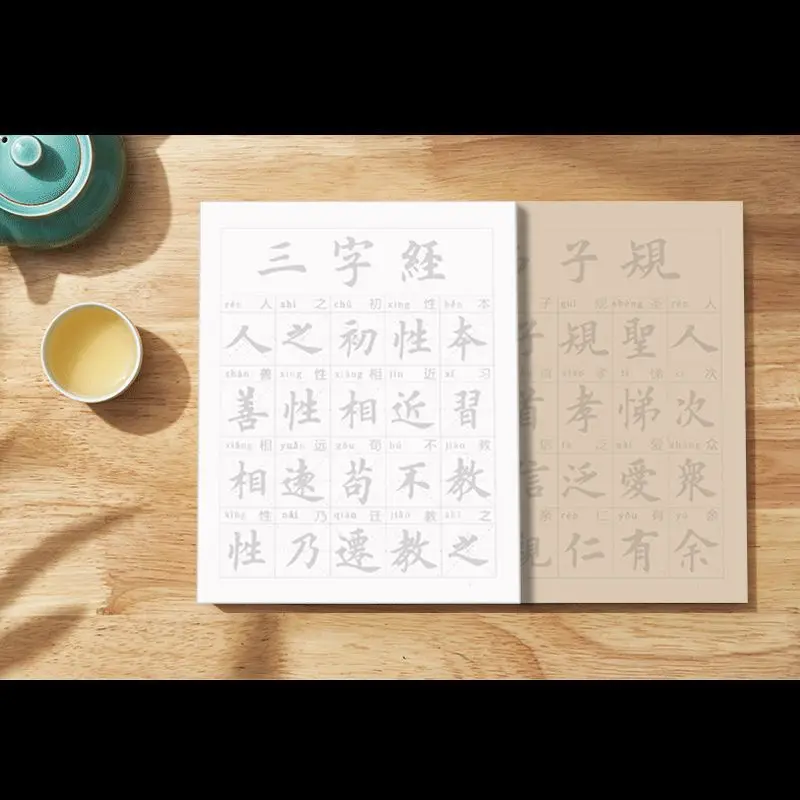 三字経
rén 人 zhī 之 chū 初 xìng 性 běn 本
人之初性本
shàn 善 xìng 性 xiāng 相 jìn 近 xí 习
善性相近習
xiāng 相 yuǎn 远 gǒu 苟 bú 不 jiào 教
相遠苟不教
xìng 性 nǎi 乃 qiān 迁 jiào 教 zhī 之
性乃遷教之
子規
子 guī 规 shèng 圣 rén 人
子規聖人
孝 tì 悌 cì 次
首孝悌次
信 fàn 泛 ài 爱 zhòng 众
信泛愛衆
亲 rén 仁 yǒu 有 yú 余
親仁有余